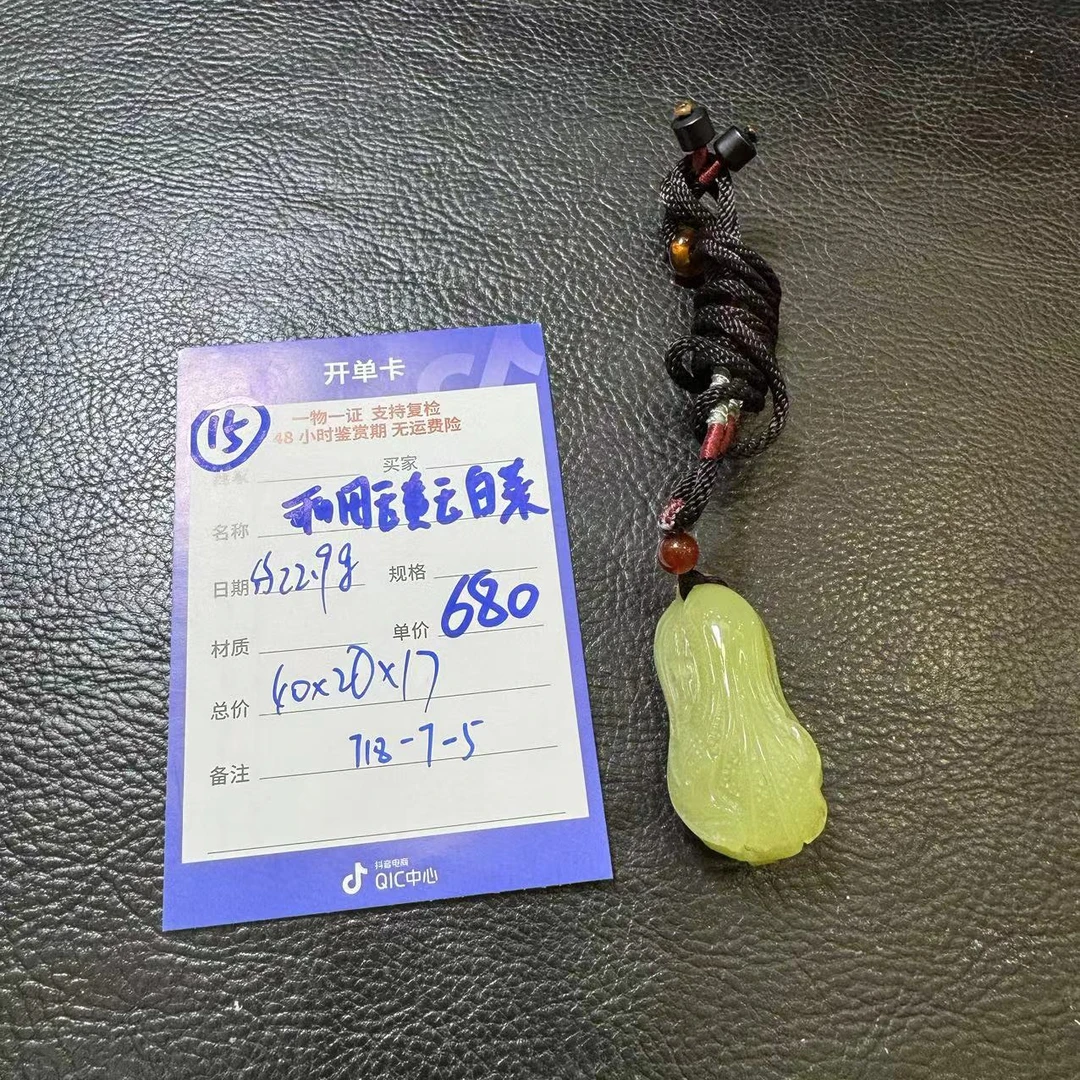 开单卡
15
一物一证 支持复检
48 小时鉴赏期 无运费险
买家
名称 和田玉黄玉白菜
日期 22.9g 规格
材质 单价 680
总价 40×20×17
备注 718-7-5
抖音电商
QIC中心